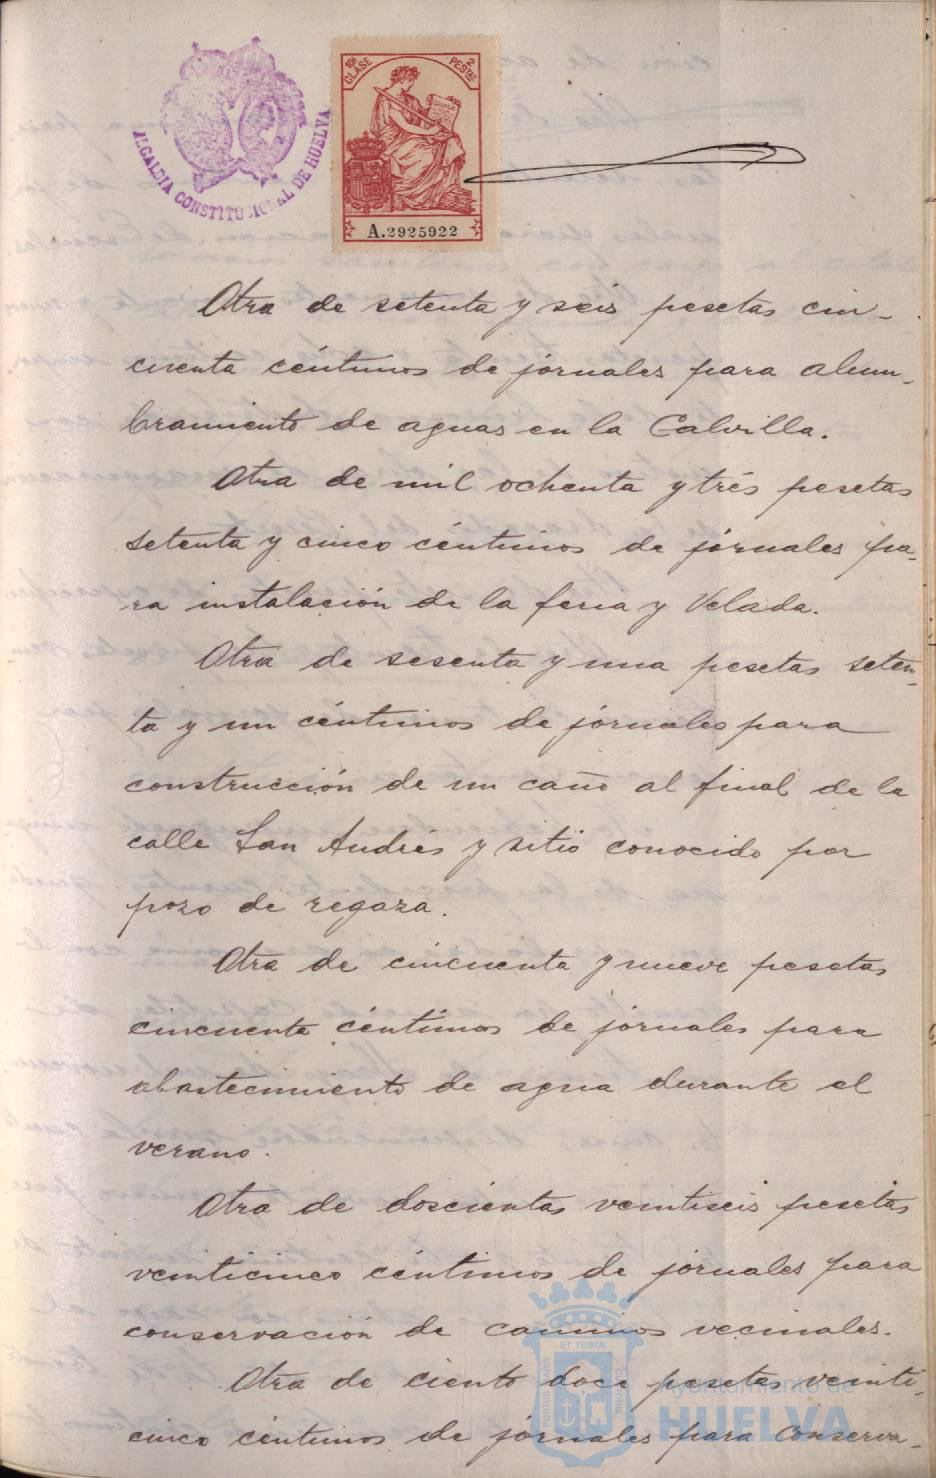 ALCALDIA CONSTITUCIONAL DE HUELVA
10ª CLASE
2 PESTAS
A.2925922
Otra de setenta y seis pesetas cin-
cuenta céntimos de jornales para alum-
bramiento de aguas en la Calvilla.
Otra de mil ochenta y trés pesetas
setenta y cinco céntimos de jornales pa-
ra instalación de la feria y Velada.
Otra de sesenta y una pesetas seten-
ta y un céntimos de jornales para
construcción de un caño al final de la
calle San Andrés y sitio conocido por
pozo de regaza.
Otra de cincuenta y nueve pesetas
cincuenta céntimos de jornales para
abastecimiento de agua durante el
verano.
Otra de doscientas veintiseis pesetas
veinticinco céntimos de jornales para
conservación de caminos vecinales.
Otra de ciento doce pesetas veinti-
cinco céntimos de jornales para conserva-
ET TERRÆ
Ayuntamiento de
HUELVA